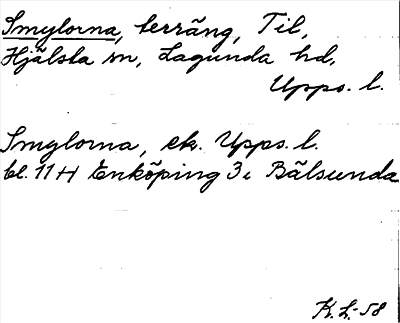 Smylorna, terräng, Til,
Hjälsta sn, Lagunda hd,
Upps. l.
Smylorna, ek. Upps. l.
bl. 11 H Enköping 3 i Bälsunda
K.L.-58